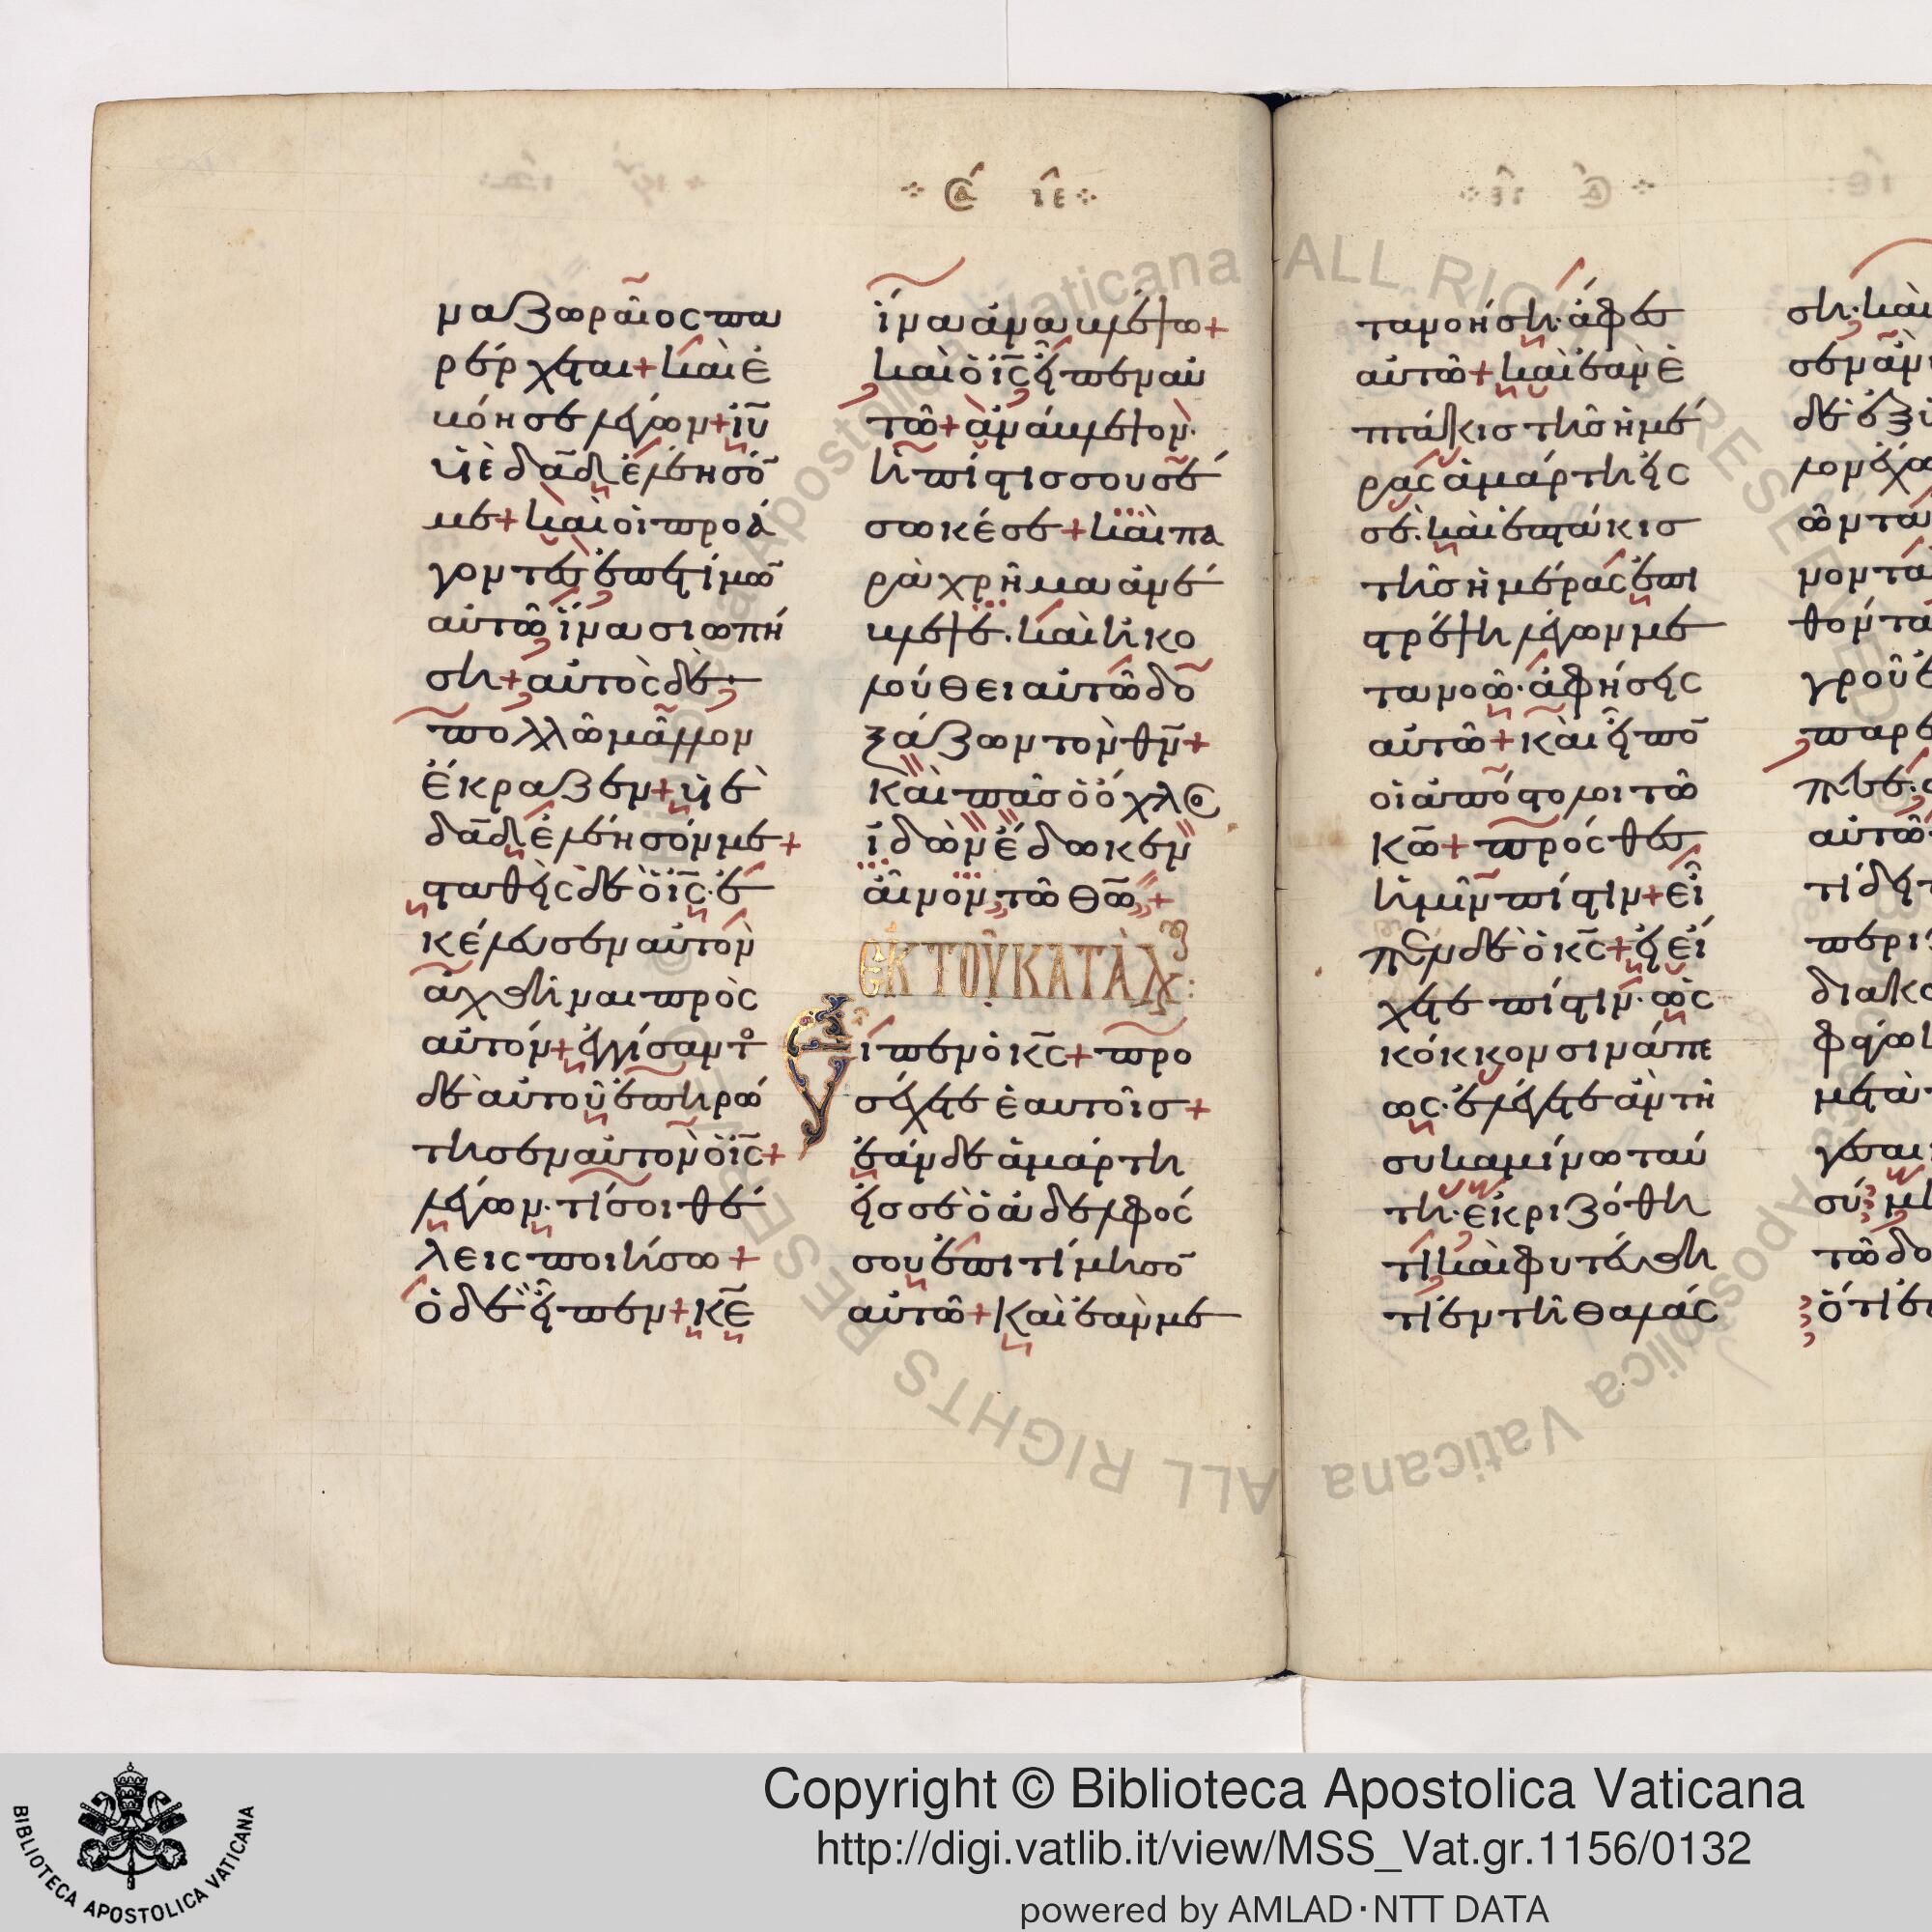 ναζωραῖος πα
ρέρχεται + καὶ ἐ
βόησε λέγων + ἰῦ
υἱὲ δᾱδ ἐλέησό̄
με + καὶ οἱ προά
γοντες ἐπετίμω̄
αὐτῶ ἵνα σιωπή
ση + αὐτὸς δὲ
πολλῶ μᾶλλον
ἔκραζεν + υἱὲ
δᾱδ ἐλέησόν με +
σταθεὶς δὲ ὁ ἰ̄ς̄. ἐ
κέλευσεν αὐτὸν
ἀχθῆναι πρὸς
αὐτόν + ἐγγίσαντο
δὲ αὐτοῦ ἐπηρώ
τησεν αὐτὸν ὁ ἰ̄ς̄ +
λέγων. τί σοι θέ
λεις ποιήσω +
ὁ δὲ εἶπεν + κ̄ε̄
Ϲά ιε
ἵνα ἀναβλέψω +
καὶ ὁ ἰ̄ς̄ εἶπεν αὐ
τῶ + ἀνάβλεψον.
ἡ πίστις σου σέ
σωκέ σε + καὶ πα
ραχρῆμα ἀνέ
βλεψε. καὶ ἠκο
λούθει αὐτῶ δο
ξάζων τὸν θ̄ν̄ +
καὶ πᾶς ὁ ὄχλος
ἰδὼν ἔδωκεν
αἶνον τῶ θ̄ω̄ +
ἐΚ ΤΟῦ ΚΑΤὰ Λ
Εἶπεν ὁ κ̄ς̄ + προ
σέχετε ἑαυτοῖς +
ἐὰν δὲ ἁμάρτη
εἰς σὲ ὁ ἀδελφός
σου ἐπιτίμησō
αὐτῶ + καὶ ἐὰν με
τανοήση. ἄφες
αὐτῶ + καὶ ἐὰν ἑ
πτάκις τῆς ἡμέ
ρας ἁμάρτη εἰς
σέ. καὶ ἑπτάκις
τῆς ἡμέρας ἐπι
στρέψη λέγων με
τανοῶ. ἀφήσεις
αὐτῶ + καὶ εἶπō
οἱ ἀπόστολοι τῶ
κ̄ω̄ + πρόσθες
ἡμῖν πίστιν + εἶ
πεν δὲ ὁ κ̄ς̄ + εἰ εἴ
χετε πίστιν. ὡς
κόκκον σινάπε
ως. ἐλέγετε ἂν τῆ
συκαμίνω ταύ
τη. ἐκριζώθη
τι καὶ φυτεύθη
τι ἐν τῆ θαλάσ
Copyright © Biblioteca Apostolica Vaticana
http://digi.vatlib.it/view/MSS_Vat.gr.1156/0132
powered by AMLAD·NTT DATA
BIBLIOTECA APOSTOLICA VATICANA